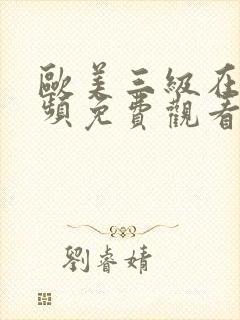 歐美三級在
頻免費觀看
劉睿婧